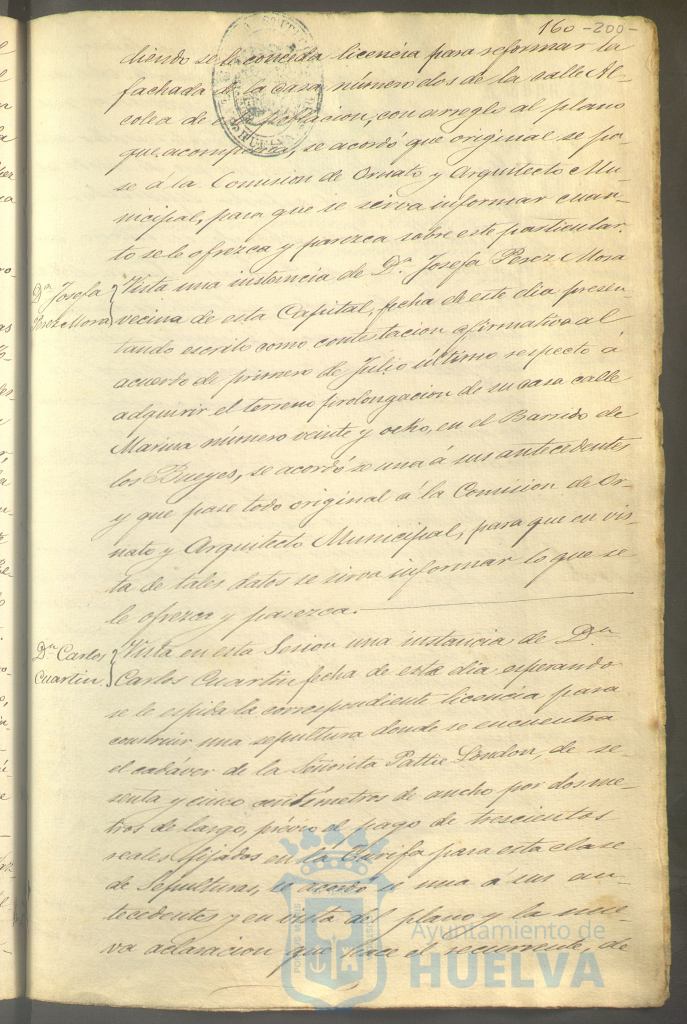 160 -200-
diendo se le conceda licencia para reformar la
fachada de la casa número dos de la calle Al-
colea de población, con arreglo al plano
que acompaña, se acordó que original se pa-
se á la Comision de Ornato y Arquitecto Mu-
nicipal, para que se sirva informar cuan-
to se le ofrezca y parezca sobre este particular.
Dª Josefa
Perez Mora
Vista una instancia de Dª Josefa Perez Mora
vecina de esta Capital, fecha de este dia presen-
tando escrito como contestacion afirmativa al
acuerdo de primero de Julio último respecto á
adquirir el terreno prolongacion de su casa calle
Marina número veinte y ocho, en el Barrido de
los Bueyes, se acordó se una á sus antecedentes
y que pase todo original á la Comision de Or-
nato y Arquitecto Municipal, para que en vis-
ta de tales datos se sirva informar lo que se
le ofrezca y parezca.
Dn Carlos
Cuartin
Vista en esta Sesion una instancia de Dn
Carlos Cuartin fecha de este dia esperando
se le espida la correspondiente licencia para
construir una sepultura donde se encuentra
el cadáver de la Señorita Pattie London, de se-
senta y cinco centímetros de ancho por dos me-
tros de largo, prévio el pago de trescientos
reales fijados en la Tarifa para esta clase
de Sepulturas, se acordó se una á sus an-
tecedentes y en vista del plano y la nue-
va aclaracion que hace el recurrente, de
Ayuntamiento de
HUELVA